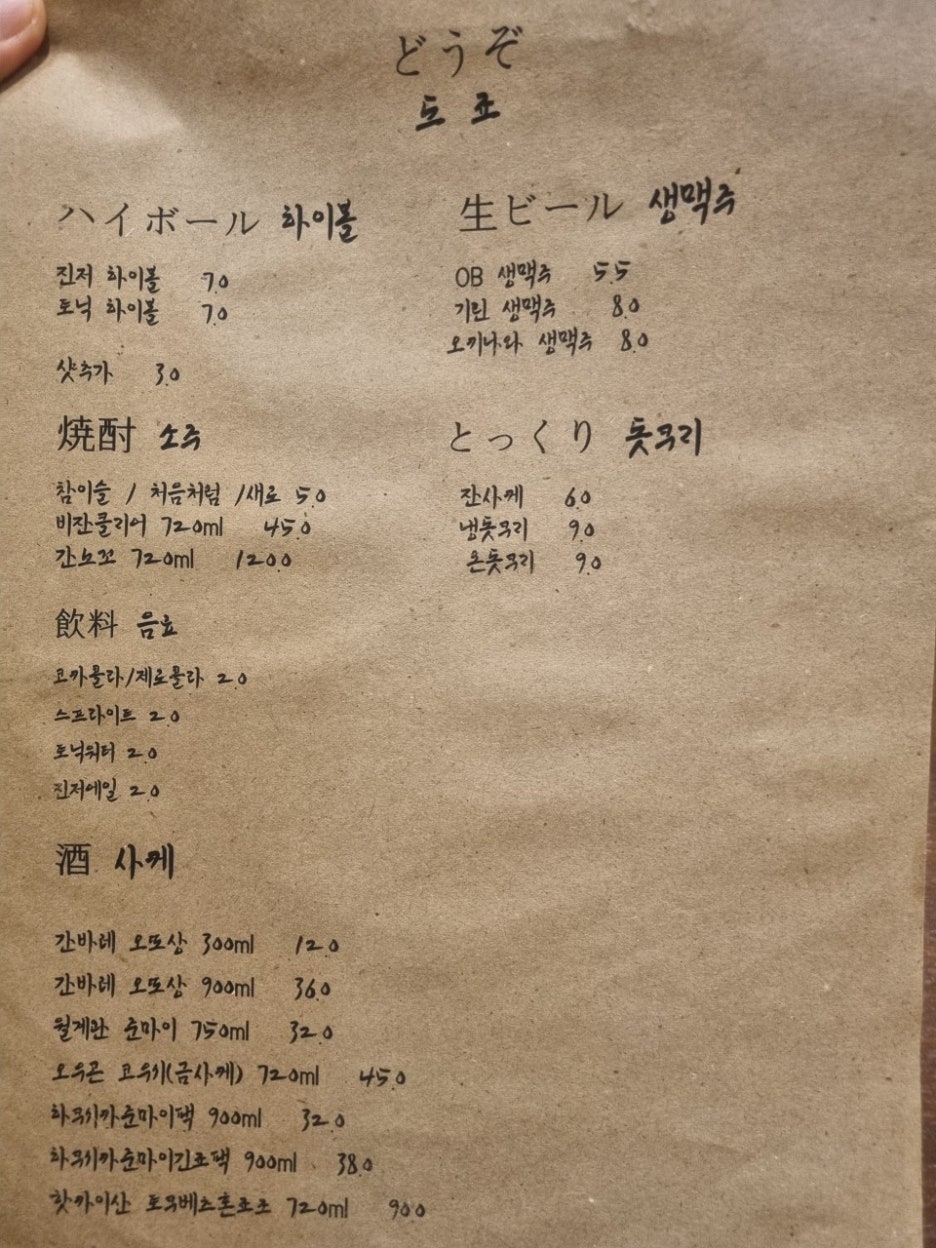 どうぞ
도죠
ハイボール 하이볼
진저 하이볼 7.0
토닉 하이볼 7.0
샷추가 3.0
生ビール 생맥주
OB 생맥주 5.5
기린 생맥주 8.0
오키나와 생맥주 8.0
焼酎 소주
참이슬 / 처음처럼 /새로 5.0
비잔클리어 720ml 45.0
간뇨꼬 720ml 120.0
とっくり 돗쿠리
잔사케 6.0
냉돗쿠리 9.0
온돗쿠리 9.0
飲料 음료
코카콜라/제로콜라 2.0
스프라이트 2.0
토닉워터 2.0
진저에일 2.0
酒 사케
간바레 오또상 300ml 12.0
간바레 오또상 900ml 36.0
월계관 준마이 750ml 32.0
오우곤 코우치(금사케) 720ml 45.0
하쿠시카준마이팩 900ml 32.0
하쿠시카준마이긴죠팩 900ml 38.0
핫카이산 토쿠베츠혼죠조 720ml 90.0